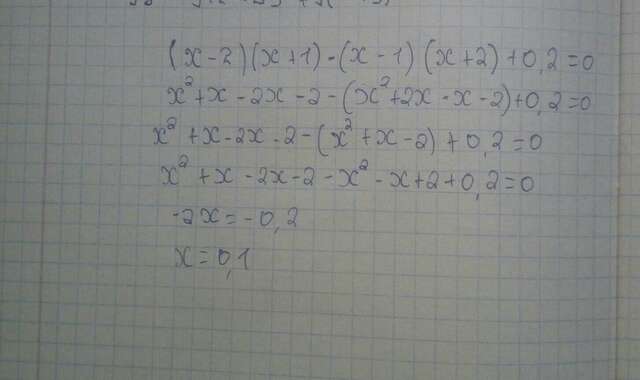 (x-2)(x+1)-(x-1)(x+2)+0,2=0
x²+x-2x-2-(x²+2x-x-2)+0,2=0
x²+x-2x-2-(x²+x-2)+0,2=0
x²+x-2x-2-x²-x+2+0,2=0
-2x=-0,2
x=0,1